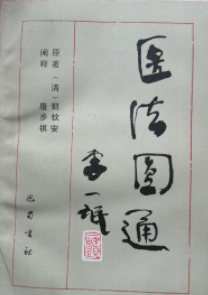 医法圆通
李一氓
原著（清）郑钦安
阐释 唐步祺
巴蜀书社